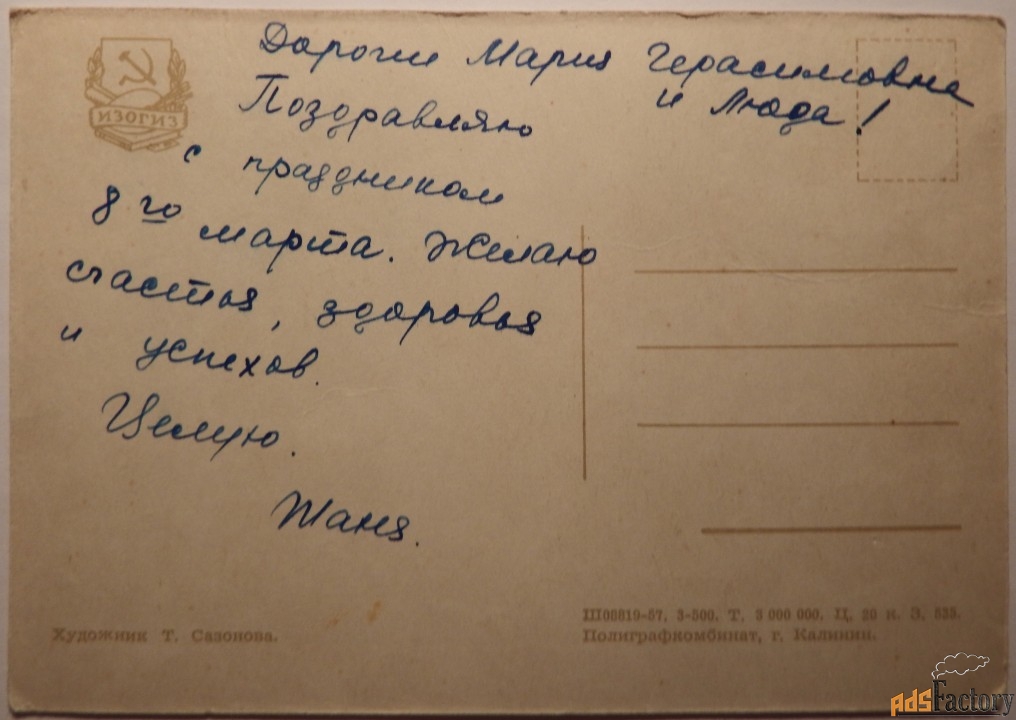 Дорогие Мария Герасимовна
и Люда!
Поздравляю
с праздником
8го марта. Желаю
счастья, здоровья
и успехов.
Целую.
Таня.
ИЗОГИЗ
Художник Т. Сазонова.
Ш06819-57. З-500. Т. 3 000 000. Ц. 20 к. З. 533.
Полиграфкомбинат, г. Калинин.
AdsFactory